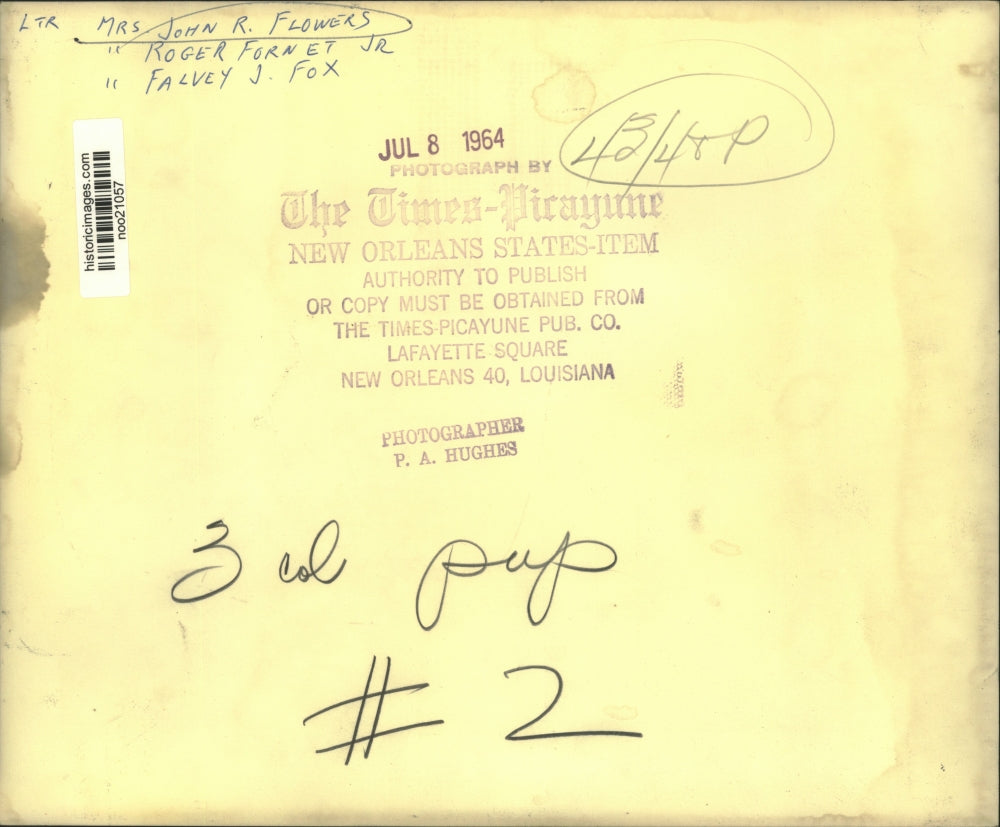 LTR MRS JOHN R. FLOWERS
" ROGER FORNET JR
" FALVEY J. FOX
historicimages.com
noo21057
JUL 8 1964
PHOTOGRAPH BY
The Times-Picayune
NEW ORLEANS STATES-ITEM
AUTHORITY TO PUBLISH
OR COPY MUST BE OBTAINED FROM
THE TIMES-PICAYUNE PUB. CO.
LAFAYETTE SQUARE
NEW ORLEANS 40, LOUISIANA
PHOTOGRAPHER
P. A. HUGHES
3 col pup
# 2